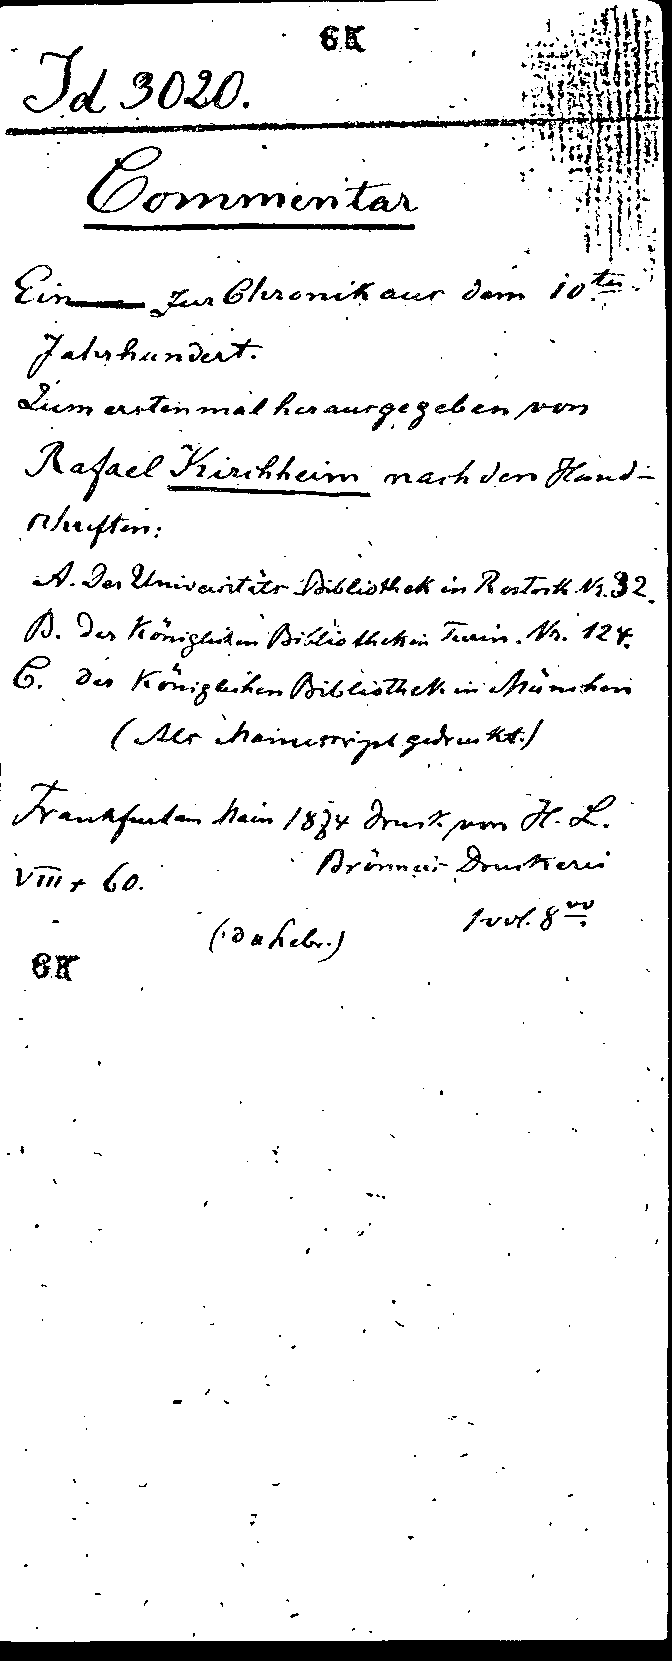 6K
Id 3020.
Commentar
Ein — zur Chronik aus dem 10ten
Jahrhundert.
Zum erstenmal herausgegeben von
Rafael Kirchheim nach den Hand-
schriften:
A. Der Universitäts Bibliothek in Rostock Nr. 32.
B. der Königlichen Bibliothek in Turin. Nr. 124.
C. der Königlichen Bibliothek in München
(Als Manuscript gedruckt.)
Frankfurt am Main 1874 Druck von H. L.
Brönner's Druckerei
VIII + 60.
1 vol. 8vo
hebr.)
6K